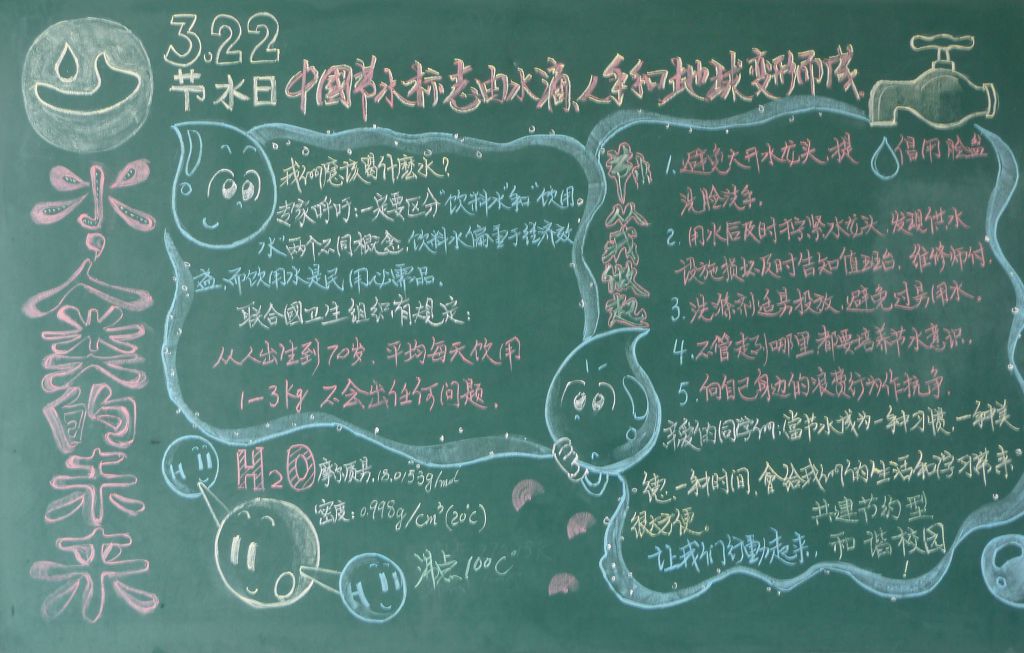 3.22
节水日
中国节水标志由水滴、人手和地球变形而成.
水,人类的未来
我们应该要什麽水?
专家呼吁:一定要区分"饮料水"和"饮用
水"两个不同概念,饮料水偏重于经济效
益,而饮用水是民用必需品.
联合國卫生组织有规定:
从人出生到70岁,平均每天饮用
1-3kg不会出任何问题.
H₂O
摩尔质量,18.0153g/mol
密度:0.998g/cm³(20℃)
沸点100C°
H
H
节水从我做起
1. 避免大开水龙头,提倡用脸盆
洗脸洗手.
2. 用水后及时拧紧水龙头,发现供水
设施损坏及时告知值班台,维修师付.
3. 洗涤剂适量投放,避免过量用水.
4. 不管走到哪里都要培养节水意识.
5. 向自己身边的浪费行为作抗争.
亲爱的同学们:當节水成为一种习慣,一种美
德,一种时间,會给我们的生活和学习带来
很方便.
让我们行動起来,
共建节约型
和谐校园!